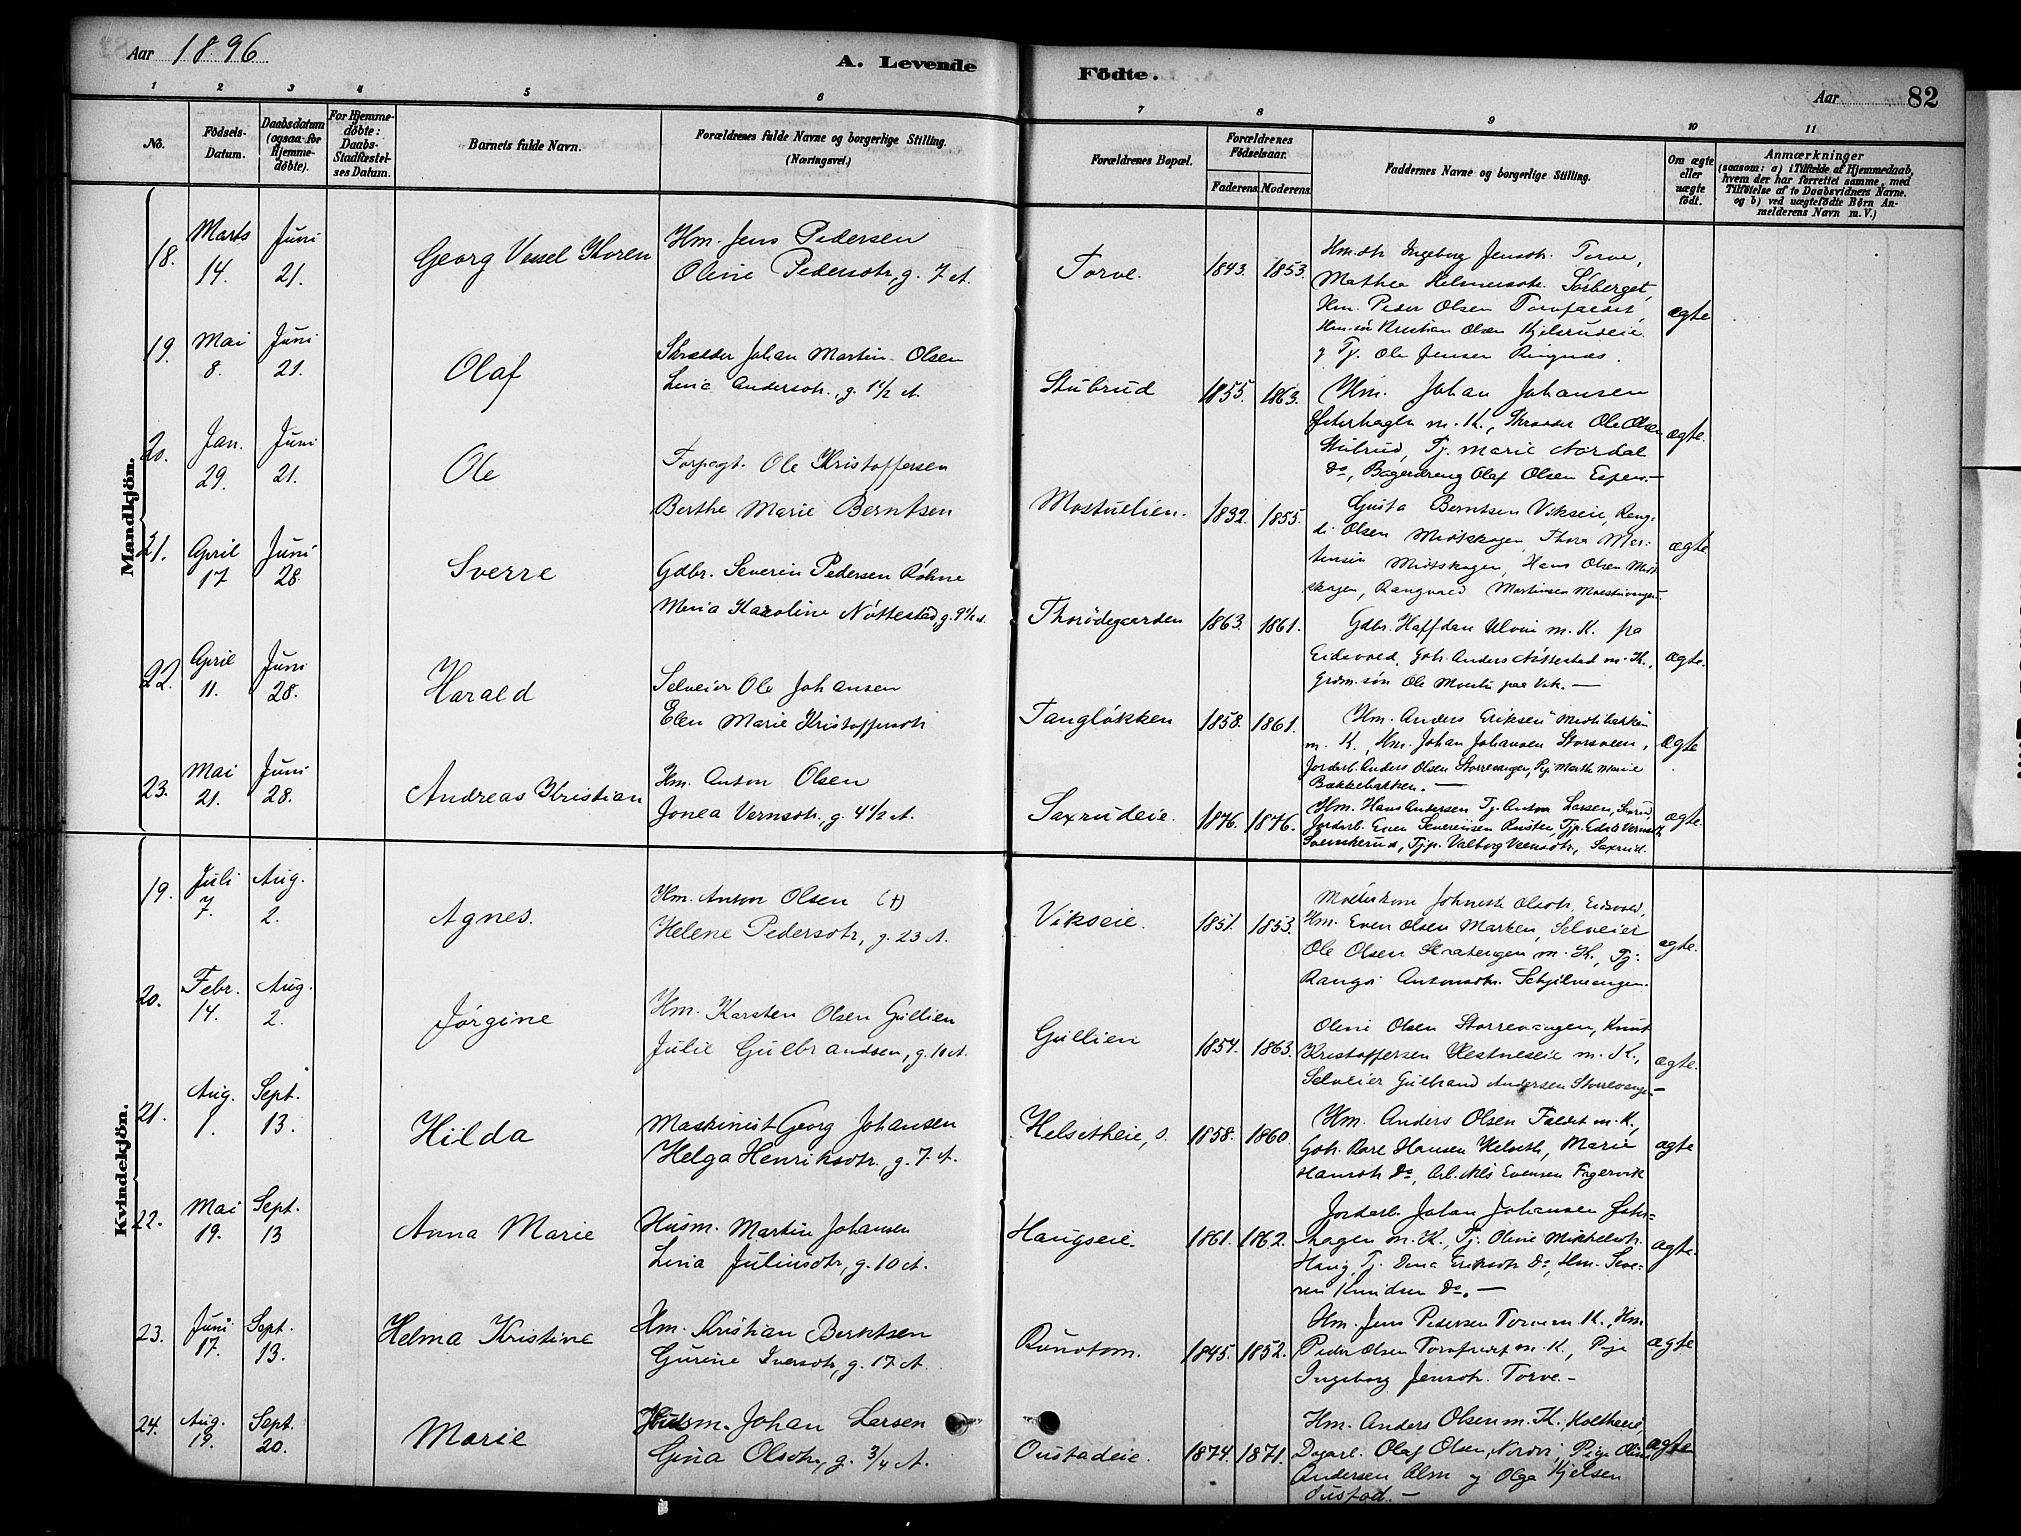 Aar 1896
A. Levende Födte.
Aar 82
1 2 3 4 5 6 7 8 9 10 11
No.
Födsels-Datum.
Daabsdatum (ogsaa for Hjemmedöbte).
For Hjemmedöbte: Daabs-Stadfæstelses Datum.
Barnets fulde Navn.
Forældrenes fulde Navne og borgerlige Stilling.
(Næringsvei.)
Forældrenes Bopæl.
Forældrenes Födselsaar.
Faderens. Moderens.
Faddernes Navne og borgerlige Stilling.
Om ægte eller uægte født.
Anmærkninger
(saasom: a) i Tilfælde af Hjemmedaab,
hvem der har forrettet samme, med
Tilföielse af to Daabsvidners Navne,
og b) ved uægtefödte Börn Anmelderens Navn m. V.)
Mandkjön.
18. Marts 14. Juni 21. Georg Vessel Thoren
Hm. Jens Pedersen
Oline Pedersdtr, g. 7 A.
Torve. 1843. 1853.
Hmdtr Ingeborg Jensdtr. Torve,
Mathea Helmersdtr. Sørberget,
Hm. Peder Olsen Tornfaldet,
Hm.søn Kristian Olsen Kjelsrudeie
g Tj. Ole Jensen Ringnæs.
ægte
19. Mai 8. Juni 21. Olaf
Skrædder Johan Martin Olsen
Lina Andersdtr., g. 1 1/2 A.
Stubrud 1855. 1863.
Hm. Johan Johansen
Østerhagen m. K., Skrædder Ole Olsen
Stubrud, Tj. Marie Nordal
Do, Bagerdreng Olaf Olsen Espen.—
ægte.
20. Jan. 29. Juni 21. Ole
Forpagt. Ole Kristoffersen
Berthe Marie Berntsen
Mostuelien. 1832. 1855.
Gusta Berntsen Vikseie,
Olsen Midtskogen, Thora Mar-
tinsen Midtskogen, Hans Olsen Midt
skogen, Rangvald Martinsen
ægte
21. April 17 Juni 28. Sverre
Gdbr. Severin Pedersen Rohne
Maria Karoline Nøttestad, g. 9 1/2 A.
Thorødegaarden 1863. 1861.
Gdbr. Halfdan Ulvin m. K. paa
Eidsvold, Gbr. Anders Nøttestad m. K.,
Grdm.søn Ole Mostu paa Vik.—
ægte.
22. April 11. Juni 28. Harald
Selveier Ole Johansen
Elen Marie Kristoffersdtr
Tangløkken 1858. 1861.
Hm. Anders Eriksen Midtibakken
m. K., Hm. Johan Johansen Storsveen,
Jordarb. Anders Olsen Storrevangen, Pige Marth Marie
Bakkebakken.—
ægte
23. Mai 21. Juni 28. Andreas Kristian
Hm. Anton Olsen
Jonea Vernsdtr, g. 4 1/2 A.
Saxrudeie. 1876. 1876.
Hm. Hans Andersen Tj. Anton Larsen, Saxrud,
Jordarb. Even Severinsen Rusten, Tjp.
Svenskerud, Tjp. Valborg Vernsdtr, Saxrud.
ægte.
Kvindekjön.
19. Juli 7. Aug. 2. Agnes.
Hm. Anton Olsen (+)
Helene Pedersdtr, g. 23 A.
Vikseie. 1851. 1853.
Olsdtr, Eidsvold,
Hm. Even Olsen Marken, Selveier
Ole Olsen m. K., Tj.
Rangdi Antonsdtr.
ægte.
20. Febr. 14. Aug. 2. Jørgine
Hm. Karsten Olsen Gullien
Julie Gulbrandsen, g. 10 A.
Gullien 1854. 1863.
Oline Olsen Storrevangen, Knut
Kristoffersen Hestneseie m. K.,
Selveier Gulbrand Andersen Storrevangen—
ægte.
21. Aug. 1. Sept. 13. Hilda
Maskinist Georg Johansen
Helga Henriksdtr. g. 7. A.
Helsetheie, s. 1858. 1860.
Hm. Anders Olsen Faldet m. K.,
Gbr. Karl Hansen Helseth, Marie
Hansdtr Do, Arb. Nils Evensen Fagervik
ægte
22. Mai 19. Sept. 13 Anna Marie
Husm. Martin Johansen
Lina Juliusdtr, g. 10 A.
Haugseie. 1861. 1862.
Jordarb. Johan Johansen Øster-
hagen m. K., Tj. Oline Mikkelsdtr
Haug, Tj. Dina Eriksdtr Do, Hm. Seve-
rin Knudsen Do.—
ægte.
23. Juni 17. Sept. 13. Helma Kristine
Hm. Kristian Berntsen
Gurine Iversdtr, g. 17 A.
Rundtom. 1845. 1852.
Hm. Jens Pedersen Torve m. K., Hm
Peder Olsen Tornfaldet m. K., Pige
Ingeborg Jensdtr. Torve.—
ægte
24. Aug. 19. Sept. 20. Marie
Husm. Johan Larsen
Gina Olsdtr, g. 3/4 A.
Oustadeie. 1874. 1871.
Hm. Anders Olsen m. K., Koltheeie,
Dagarb. Olaf Olsen, Nordvi, Pige Oline
Andersen Alm g Olga Kjelsen
Oustad.—
ægte